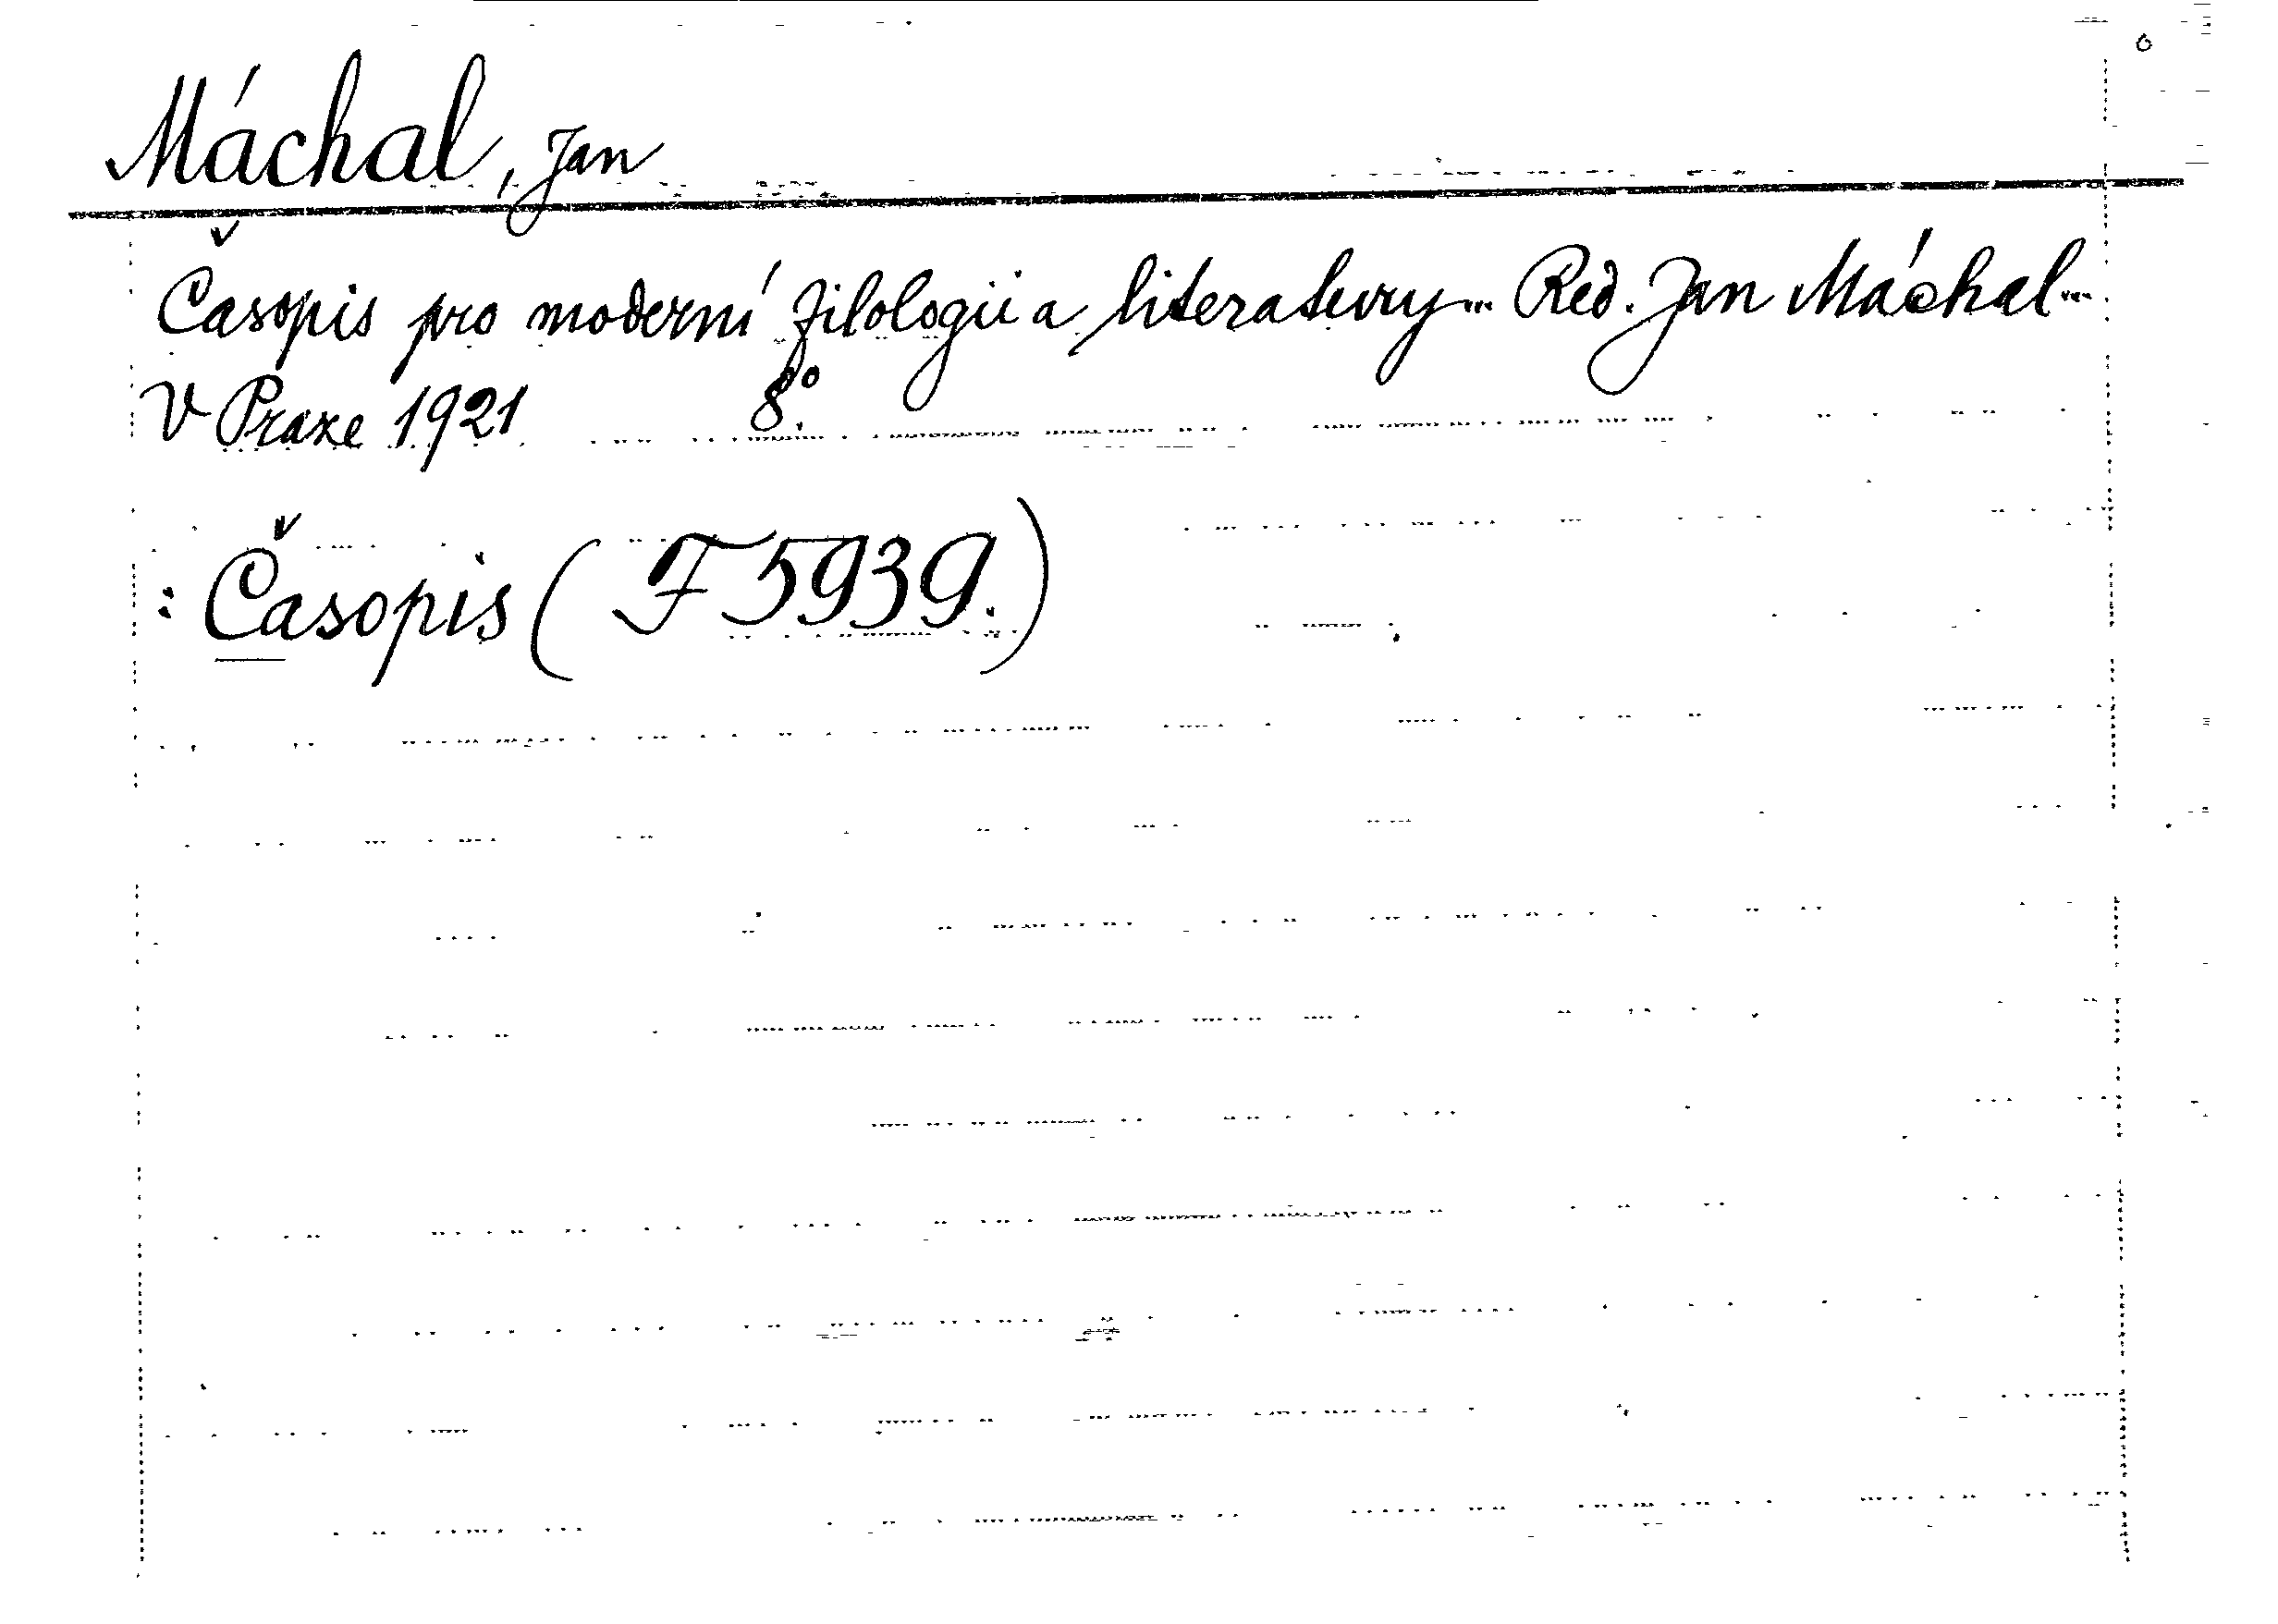 Máchal, Jan
Časopis pro moderní filologii a literatury... Red. Jan Máchal...
V Praze 1921 8°.
: Časopis ( F 5939. )